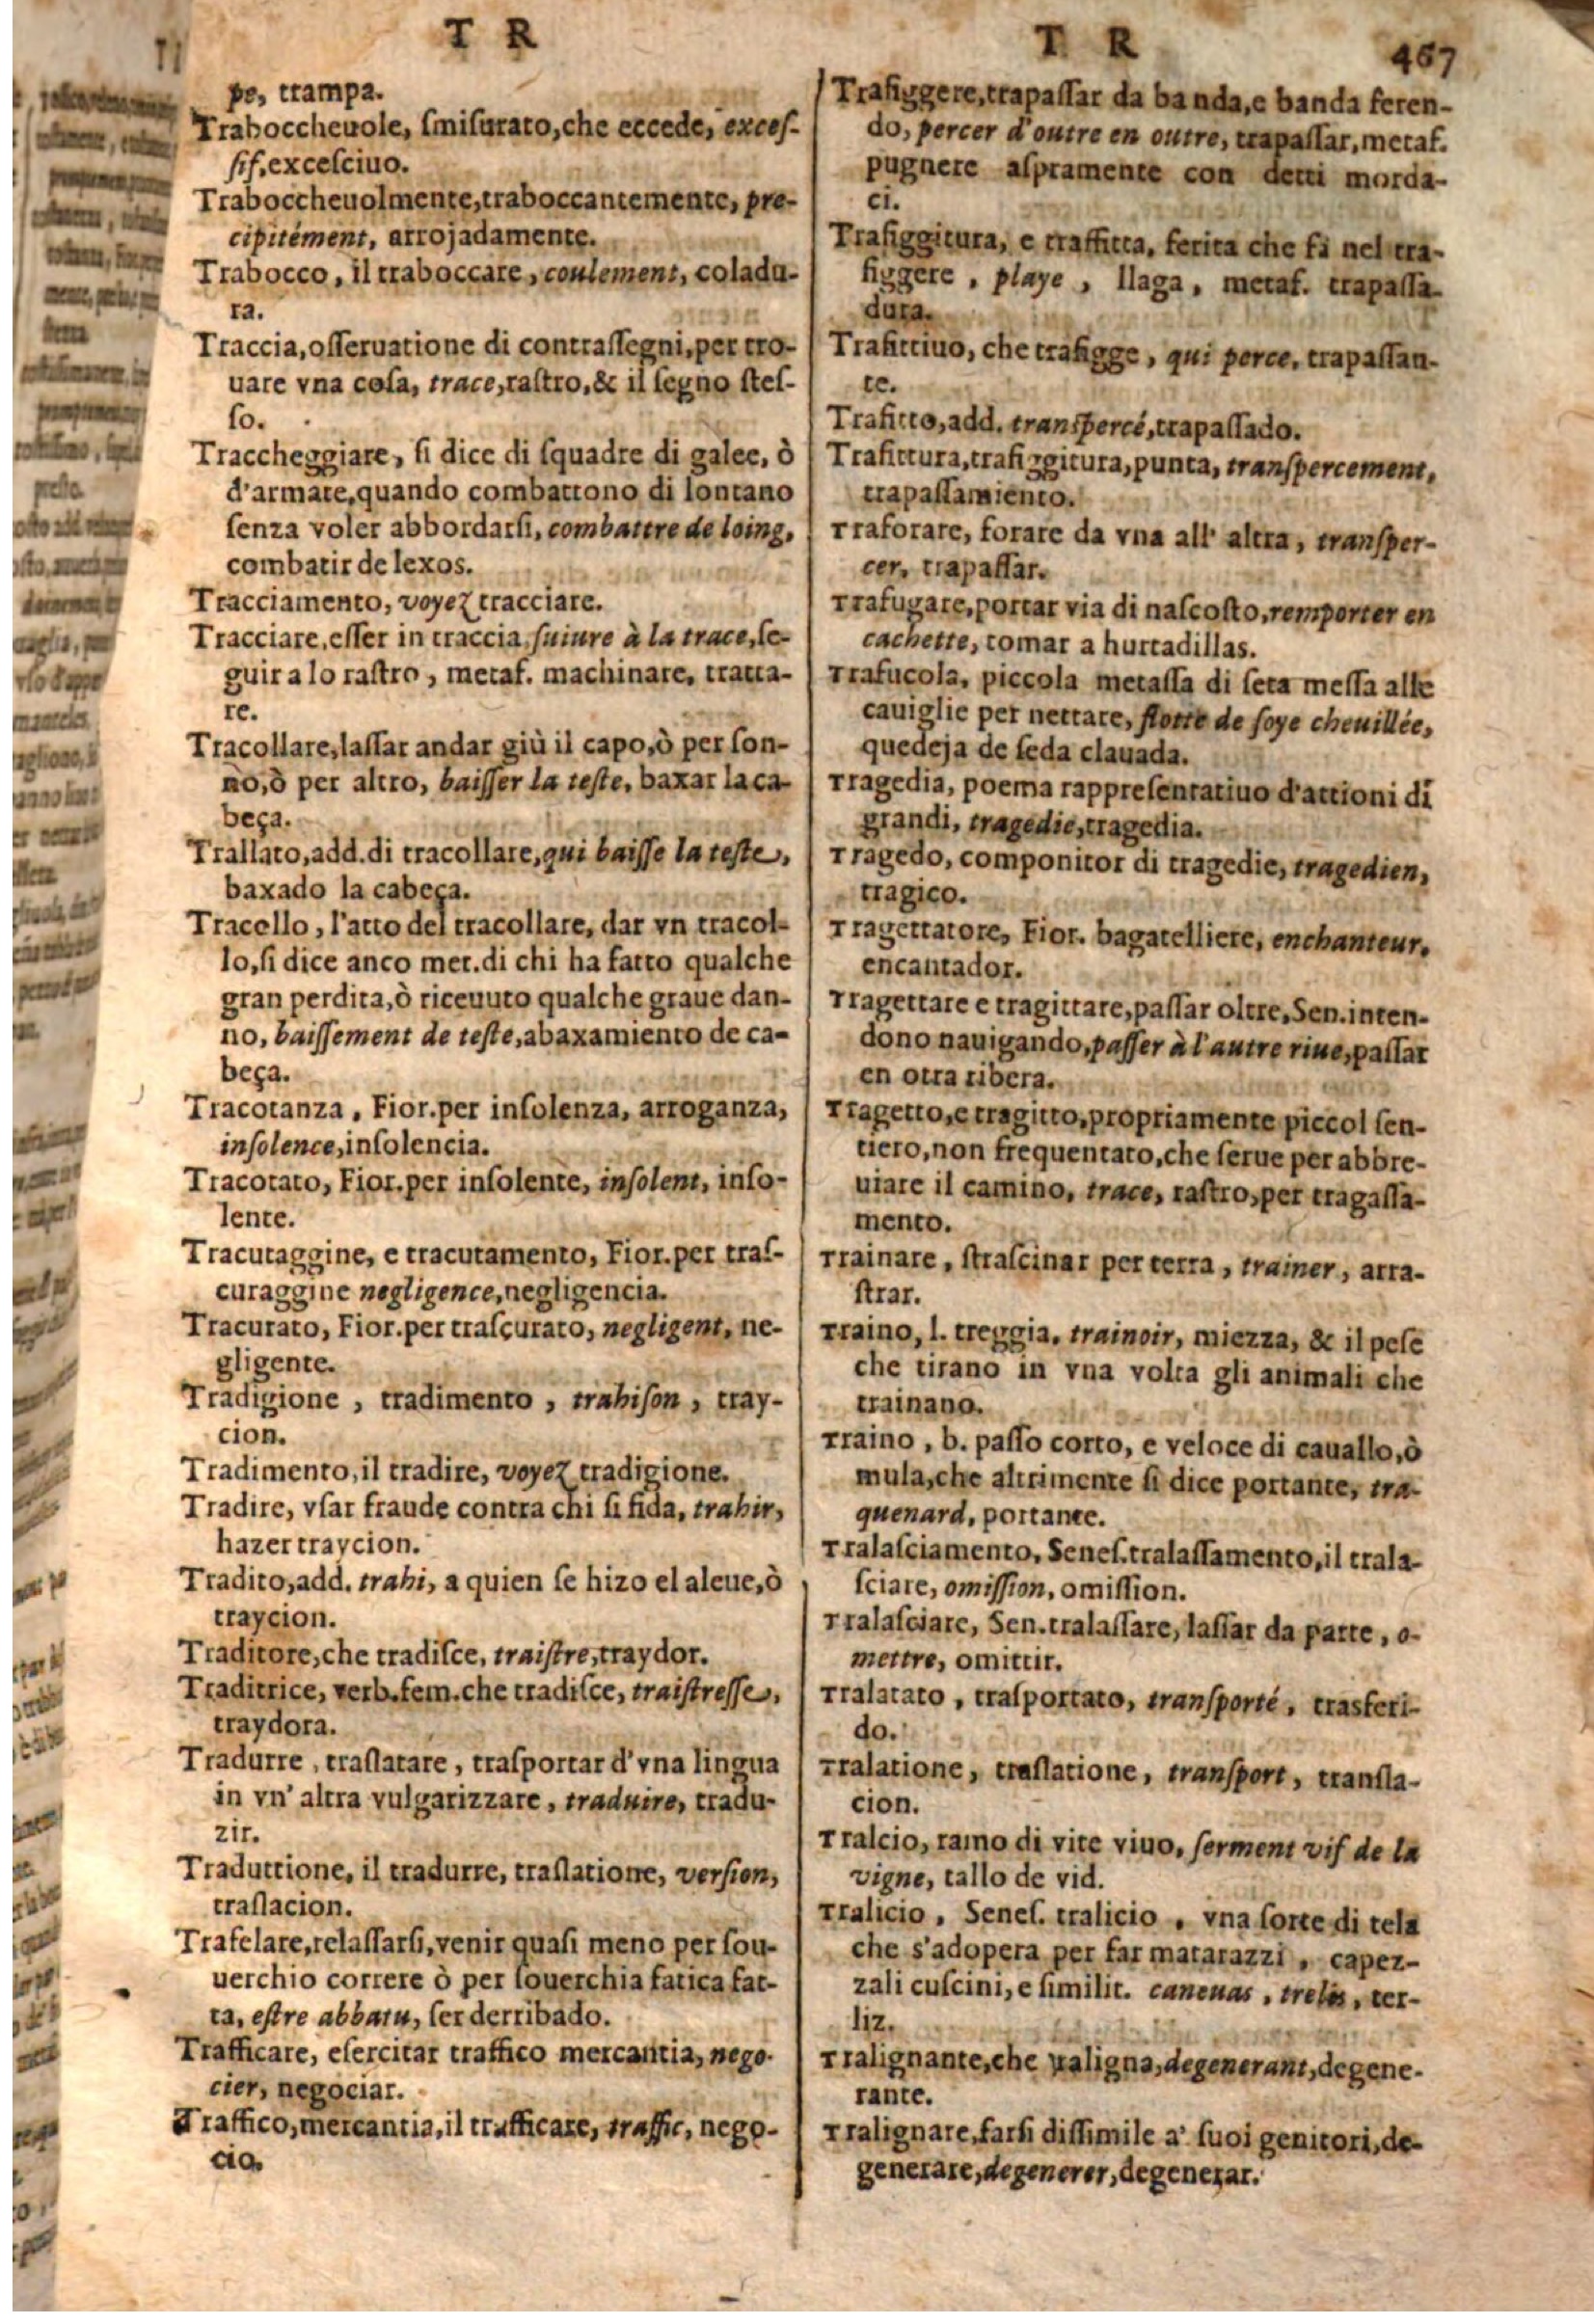 T R
pe, trampa.
Traboccheuole, ſmiſurato,che eccede, exceſ-
ſif,exceſciuo.
Traboccheuolmente,traboccantemente, pre-
cipitément, arrojadamente.
Trabocco, il traboccare, coulement, coladu-
ra.
Traccia,oſſeruatione di contraſſegni,per tro-
uare vna coſa, trace,raſtro,& il ſegno ſteſ-
ſo.
Traccheggiare, ſi dice di ſquadre di galee, ò
d'armate,quando combattono di lontano
ſenza voler abbordarſi, combattre de loing,
combatir de lexos.
Tracciamento, voyez tracciare.
Tracciare,eſſer in traccia,ſuiure à la trace,ſe-
guir a lo raſtro, metaf. machinare, tratta-
re.
Tracollare,laſſar andar giù il capo,ò per ſon-
no,ò per altro, baiſſer la teſte, baxar la ca-
beça.
Trallato,add.di tracollare,qui baiſſe la teſte,
baxado la cabeça.
Tracollo, l'atto del tracollare, dar vn tracol-
lo,ſi dice anco met.di chi ha fatto qualche
gran perdita,ò riceuuto qualche graue dan-
no, baiſſement de teſte,abaxamiento de ca-
beça.
Tracotanza, Fior.per inſolenza, arroganza,
inſolence,inſolencia.
Tracotato, Fior.per inſolente, inſolent, inſo-
lente.
Tracutaggine, e tracutamento, Fior.per traſ-
curaggine negligence,negligencia.
Tracurato, Fior.per traſcurato, negligent, ne-
gligente.
Tradigione, tradimento, trahiſon, tray-
cion.
Tradimento,il tradire, voyez tradigione.
Tradire, vſar fraude contra chi ſi fida, trahir,
hazer traycion.
Tradito,add. trahi, a quien ſe hizo el aleue,ò
traycion.
Traditore,che tradiſce, traiſtre,traydor.
Traditrice, verb.fem.che tradiſce, traiſtreſſe,
traydora.
Tradurre, traſlatare, traſportar d'vna lingua
in vn' altra vulgarizzare, traduire, tradu-
zir.
Traduttione, il tradurre, traſlatione, verſion,
traſlacion.
Trafelare,relaſſarſi,venir quaſi meno per ſou-
uerchio correre ò per ſouerchia fatica fat-
ta, eſtre abbatu, ſer derribado.
Trafficare, eſercitar traffico mercantia, nego-
cier, negociar.
Traffico,mercantia,il trafficare, traffic, nego-
cio.
T R 467
Trafiggere,trapaſſar da banda,e banda feren-
do, percer d'outre en outre, trapaſſar,metaf.
pugnere aſpramente con detti morda-
ci.
Trafiggitura, e traffitta, ferita che fi nel tra-
figgere, playe, llaga, metaf. trapaſſa-
dura.
Trafittiuo, che trafigge, qui perce, trapaſſan-
te.
Trafitto,add. tranſpercé,trapaſſado.
Trafittura,trafiggitura,punta, tranſpercement,
trapaſſamiento.
Traforare, forare da vna all' altra, tranſper-
cer, trapaſſar.
Trafugare,portar via di naſcoſto,remporter en
cachette, tomar a hurtadillas.
Trafucola, piccola metaſſa di ſeta meſſa alle
cauiglie per nettare, flotte de ſoye cheuillée,
quedeja de ſeda clauada.
Tragedia, poema rappreſentatiuo d'attioni di
grandi, tragedie,tragedia.
Tragedo, componitor di tragedie, tragedien,
tragico.
Tragettatore, Fior. bagatelliere, enchanteur,
encantador.
Tragettare e tragittare,paſſar oltre,Sen.inten-
dono nauigando,paſſer à l'autre riue,paſſar
en otra ribera.
Tragetto,e tragitto,propriamente piccol ſen-
tiero,non frequentato,che ſerue per abbre-
uiare il camino, trace, raſtro,per tragaſſa-
mento.
Trainare, ſtraſcinar per terra, trainer, arra-
ſtrar.
Traino, l. treggia, trainoir, miezza, & il peſe
che tirano in vna volta gli animali che
trainano.
Traino, b. paſſo corto, e veloce di cauallo,ò
mula,che altrimente ſi dice portante, tra-
quenard, portante.
Tralaſciamento, Seneſ.tralaſſamento,il trala-
ſciare, omiſſion, omiſſion.
Tralaſciare, Sen.tralaſſare, laſſar da parte, o-
mettre, omittir.
Tralatato, traſportato, tranſporté, trasferi-
do.
Tralatione, traſlatione, tranſport, tranſla-
cion.
Tralcio, ramo di vite viuo, ſerment vif de la
vigne, tallo de vid.
Tralicio, Seneſ. tralicio, vna ſorte di tela
che s'adopera per far matarazzi, capez-
zali cuſcini, e ſimilit. caneuas, trelis, ter-
liz.
Tralignante,che traligna,degenerant,degene-
rante.
Tralignare,farſi diſſimile a' ſuoi genitori,de-
generare,degenerer,degenerar.